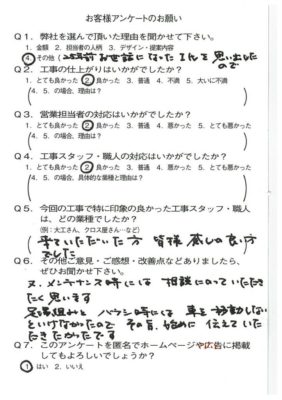 お客様アンケートのお願い
Q1.弊社を選んで頂いた理由を聞かせて下さい。
1.金額 2.担当者の人柄 3.デザイン・提案内容
4.その他(  年前お世話になったことを思い出した
ので
Q2.工事の仕上がりはいかがでしたか?
1.とても良かった 2.良かった 3.普通 4.不満 5.大いに不満
(4.5.の場合、理由は?
Q3.営業担当者の対応はいかがでしたか?
1.とても良かった 2.良かった 3.普通 4.悪かった 5.とても悪かった
(4.5.の場合、理由は?
Q4.工事スタッフ・職人の対応はいかがでしたか?
1.とても良かった 2.良かった 3.普通 4.悪かった 5.とても悪かった
(4.5.の場合、具体的な業種と理由は?
Q5.今回の工事で特に印象の良かった工事スタッフ・職人
は、どの業種でしたか?
(例:大工さん、クロス屋さん…など)
来ていただいた方 皆様 感じの良い方
でした
Q6.その他ご意見・ご感想・改善点などありましたら、
ぜひお聞かせ下さい。
又、メンテナンス時には 相談にのっていただき
たく思います
足場組みと バラシ時には 車を移動しない
といけなかったので その旨、始めに 伝えていた
だきたかったです
Q7.このアンケートを匿名でホームページや広告に掲載
してもよろしいでしょうか?
1.はい 2.いいえ